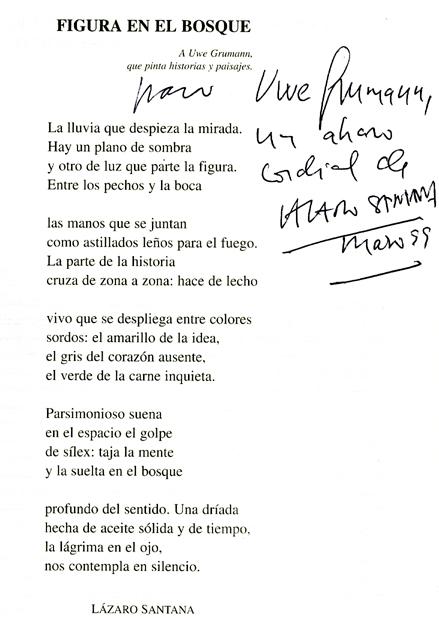 FIGURA EN EL BOSQUE
A Uwe Grumann,
que pinta historias y paisajes.
para Uwe Grumann,
un abrazo
cordial de
LÁZARO SANTANA
Marzo 99
La lluvia que despieza la mirada.
Hay un plano de sombra
y otro de luz que parte la figura.
Entre los pechos y la boca
las manos que se juntan
como astillados leños para el fuego.
La parte de la historia
cruza de zona a zona: hace de lecho
vivo que se despliega entre colores
sordos: el amarillo de la idea,
el gris del corazón ausente,
el verde de la carne inquieta.
Parsimonioso suena
en el espacio el golpe
de sílex: taja la mente
y la suelta en el bosque
profundo del sentido. Una dríada
hecha de aceite sólida y de tiempo,
la lágrima en el ojo,
nos contempla en silencio.
LÁZARO SANTANA